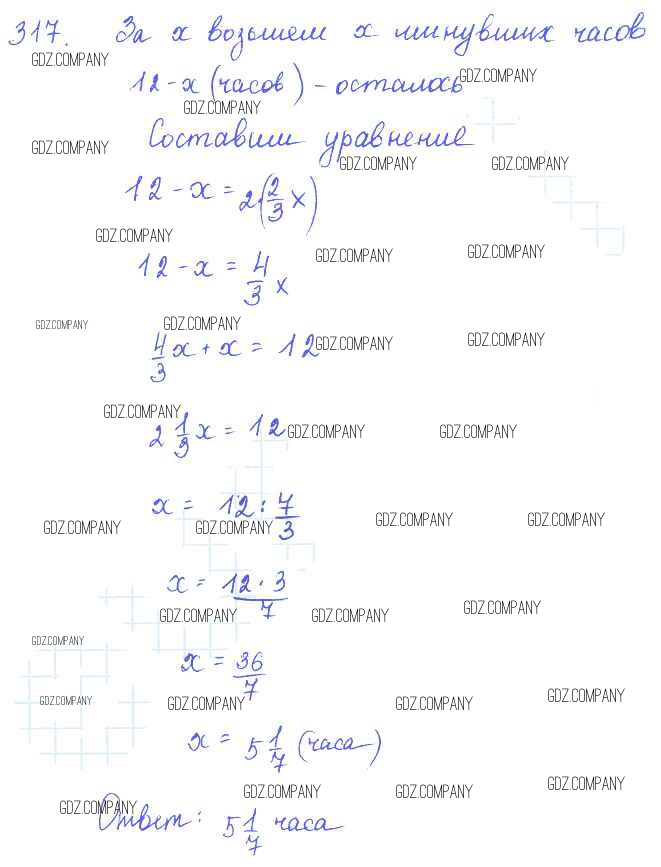 317. За x возьмем x минувших часов
GDZ.COMPANY
12-x (часов) - осталось GDZ.COMPANY
GDZ.COMPANY
GDZ.COMPANY Составим уравнение
GDZ.COMPANY GDZ.COMPANY
12-x = 2·(2/3 x)
GDZ.COMPANY
12-x = 4/3 x GDZ.COMPANY GDZ.COMPANY
GDZ.COMPANY GDZ.COMPANY
4/3 x + x = 12 GDZ.COMPANY GDZ.COMPANY
GDZ.COMPANY
2 1/3 x = 12 GDZ.COMPANY GDZ.COMPANY
x = 12 : 7/3
GDZ.COMPANY GDZ.COMPANY GDZ.COMPANY GDZ.COMPANY
x = 12·3/7
GDZ.COMPANY GDZ.COMPANY GDZ.COMPANY
GDZ.COMPANY
x = 36/7
GDZ.COMPANY GDZ.COMPANY GDZ.COMPANY GDZ.COMPANY
x = 5 1/7 (часа)
GDZ.COMPANY GDZ.COMPANY GDZ.COMPANY
GDZ.COMPANY
Ответ: 5 1/7 часа